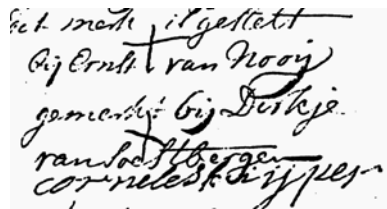 het merk is gestelt
bij Ernst van Nooij
gemerkt bij Dirkje
van Soestbergen
cornelis kuijper